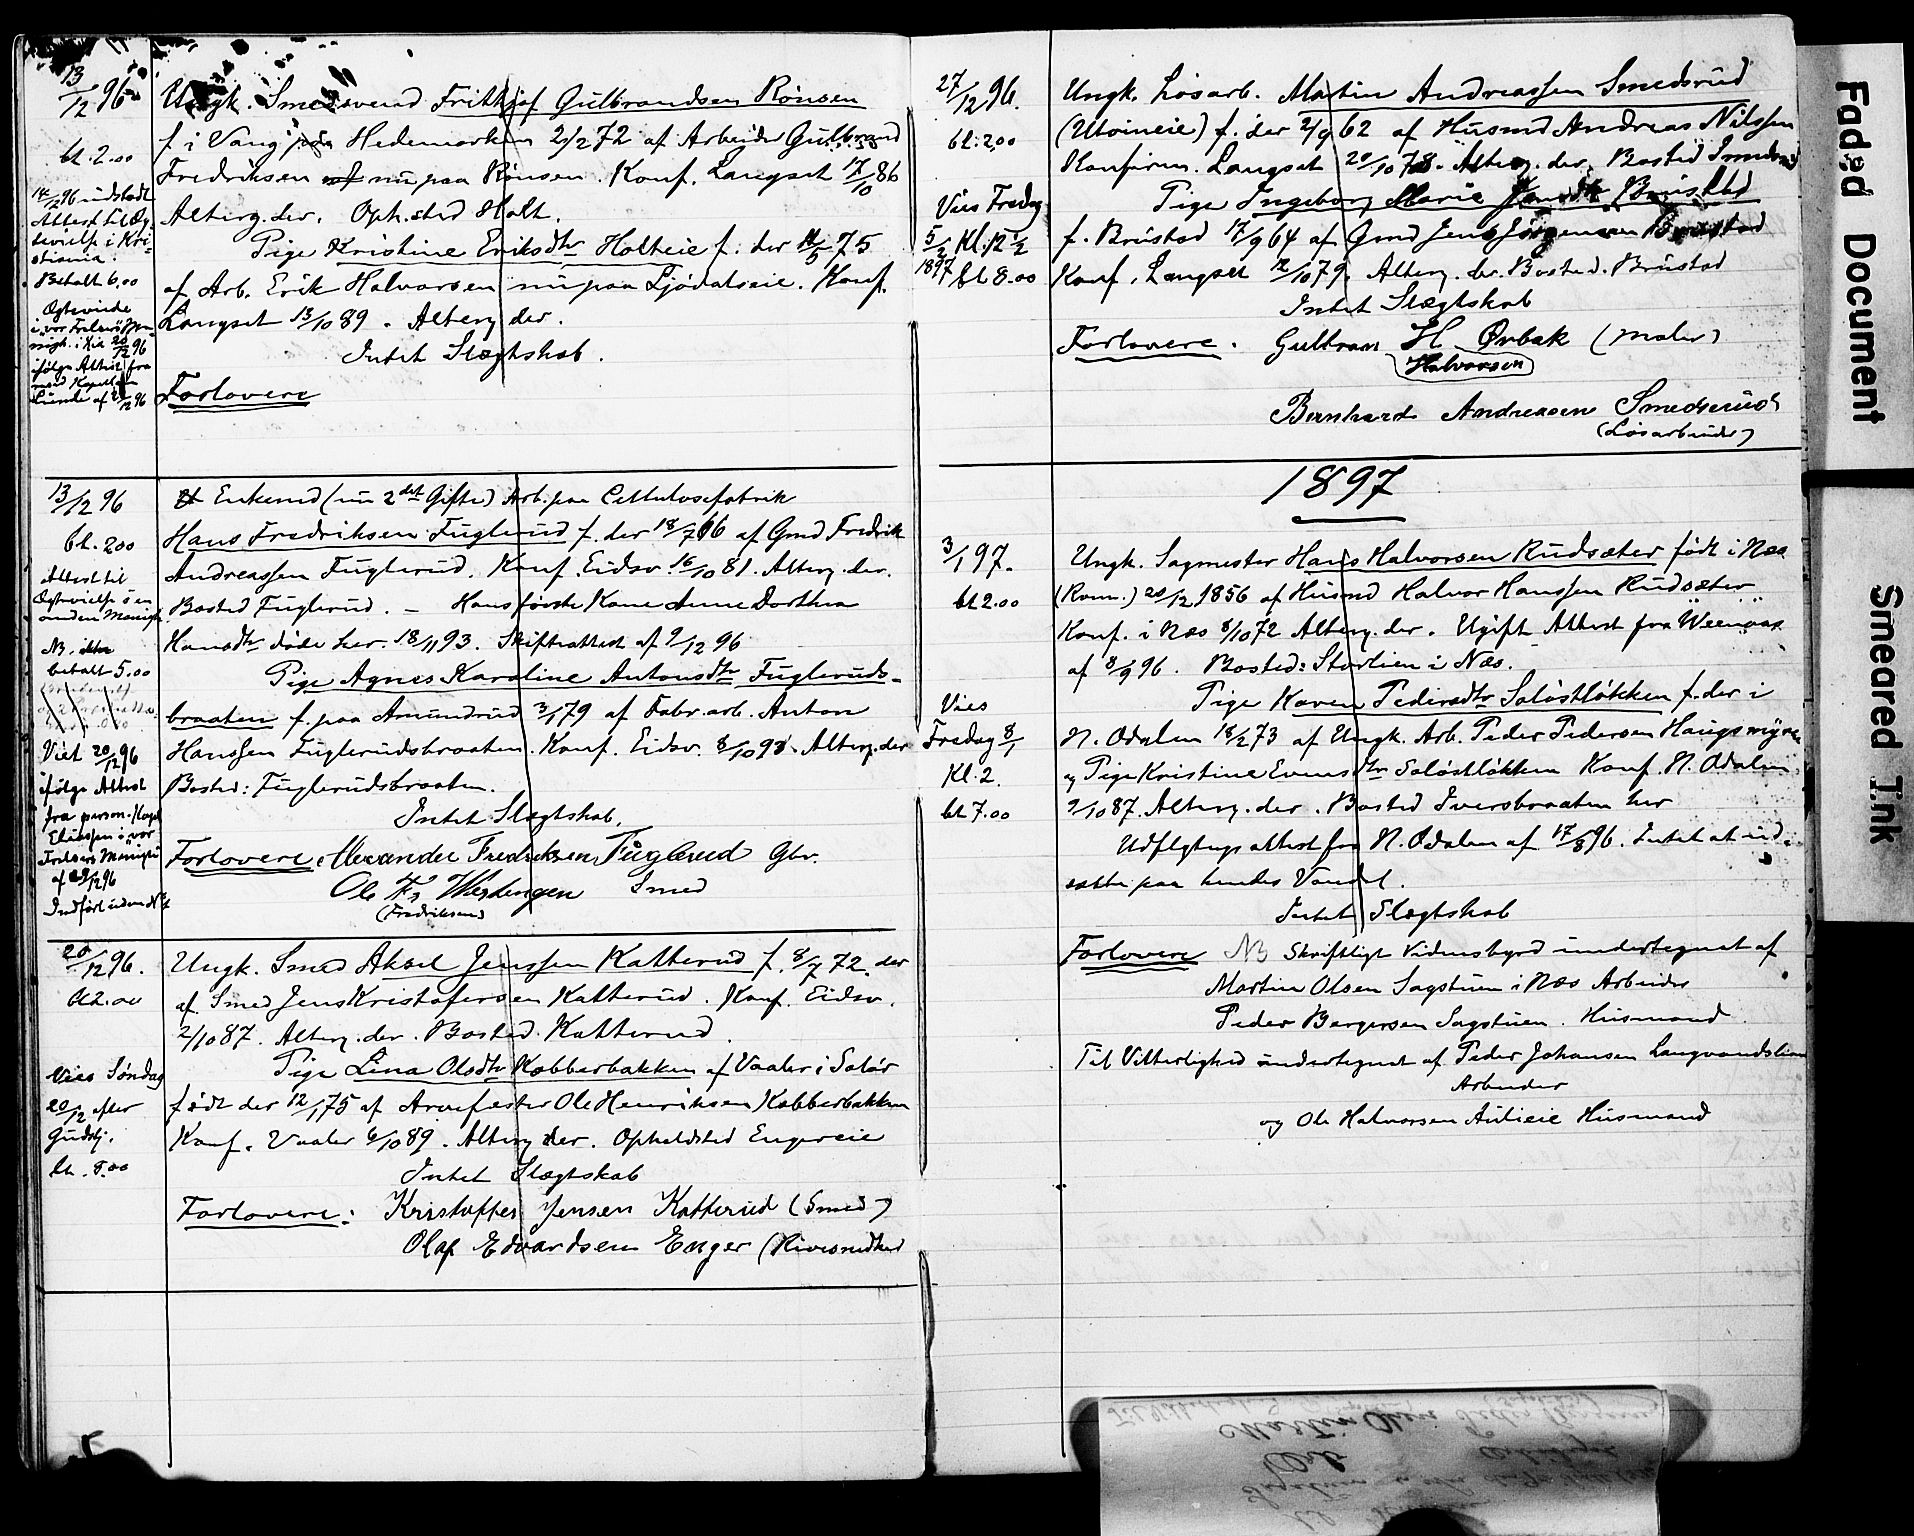 13/12 96
bt. 2.00
14/12 96 udstedt
Attest til Æg-
tevielse i Kri-
stiania.
Betalt 6.00
Ægteviede
i vor Frelsers Me-
nigh. i Kra 20/12 96
ifølge Attest fra
Lunde af 21/12 96
Ungk. Smedsvend Frithjof Gulbrandsen Rönsen
f i Vang paa Hedemarken 2/2 72 af Arbeider Gulbrand
Fredriksen nu paa Rönsen. Konf. Langset 17/10 86
Alterg. der. Oph.sted Holt.
Pige Kristine Eriksdtr Holteie f. der 75
af Arb. Erik Halvorsen nu paa Ljödalseie. Konf.
Langset 13/10 89. Alterg der.
Intet Slægtskab.
Forlovere
13/12 96
bt. 200
Attest til
Ægtevielse i en
anden Menigh.
NB. ikke
betalt 5.00
Viet 20/12 96
ifølge Attest
fra person. Kapel
Eliassen i vor
Frelsers Menighed
af 12 96
Indført uden No
Enkemd (nu 2det Gifte) Arb. paa Cellulosefabrik
Hans Fredriksen Fuglerud f. der 18/7 66 af Gmd Fredrik
Andreassen Fuglerud. Konf. Eidsv. 16/10 81. Alterg. der.
Bosted Fuglerud. – Hans første Kone Anne Dorthea
Hansdtr døde her. 18/11 93. Skifteattest af 9/12 96
Pige Agnes Karoline Antonsdtr Fugleruds-
braaten f. paa Amundrud 3/1 79 af Fabr. arb. Anton
Hanssen Fuglerudsbraaten. Konf. Eidsv. 8/10 93. Alterg. der
Bosted: Fuglerudsbraaten.
Intet Slægtskab.
Forlovere. Alexander Fredriksen Fuglerud Gbr.
Ole Fr Westengen Smed
(Fredriksen)
20/12 96.
bt 2.00
Vies Söndag
20/12 efter
Gudstj.
bt. 8.00
Ungk. Smed Aksel Jenssen Katterud f. 8/7 72. der
af Smed Jens Kristofersen Katterud. Konf. Eidsv.
2/10 87. Alterg. der. Bosted. Katterud.
Pige Lina Olsdtr Kobberbakken af Vaaler i Solör
født der 12/1 75 af Arvefester Ole Henriksen Kobberbakken
Konf. Vaaler 6/10 89. Alterg der. Opholdsted Engereie
Intet Slægtskab
Forlovere: Kristoffer Jensen Katterud (Smed)
Olaf Edvardsen Enger
27/12 96.
bt: 2.00
Vies Fredag
5/2 Kl. 12 1/2
1897 bt 8.00
Ungk. Løsarb. Martin Andreassen Smedsrud
(Utoineie) f. der 2/9 62 af Husmd Andreas Nilssen
Konfirm. Langset 20/10 78. Alterg. der. Bosted Smedsrud
Pige Ingeborg Marie Jensdtr Brustad
f. Brustad 17/9 64 af Gmd Jens Jörgensen Brustad
Konf. Langset 12/10 79. Alterg. der. Bosted. Brustad
Intet Slægtskab
Forlovere. Gulbran H. Ørbak (Maler)
Halvorsen
Bernhard Andreasen Smedserud
(Løsarbeider)
1897
3/1 97.
bt 2.00
Vies
Fredag 8/1
Kl. 2.
bt 7.00
Ungk. Sagmester Hans Halvorsen Rudsæter født i Næs
(Rom.) 20/12 1856 af Husmd Halvor Hanssen Rudsæter
Konf. i Næs 8/10 72 Alterg. der. Ugift Attest fra
af 8/9 96. Bosted: Storlien i Næs.
Pige Karen Pedersdtr Solöstlökken f. der i
N. Odalen 18/2 73 af Ungk. Arb. Peder Pedersen Haugsmyren
og Pige Kristine Evensdtr Solöstlökken Konf. N. Odalen
2/10 87. Alterg. der. Bosted Iversbraaten her
Udflytngs attest fra N. Odalen af 17/8 96. Intet at ind-
sætte paa hendes Vandel.
Intet Slægtskab
Forlovere NB Skriftligt Vidnesbyrd undertegnet af
Martin Olsen Sagstuen i Næs Arbeider
Peder Bergersen Sagstuen. Husmand.
Til Vitterlighed undertegnet af Peder Johansen Langvandslien
Arbeider
og Ole Halvorsen Aulieie Husmand
Faded Document
Smeared Ink